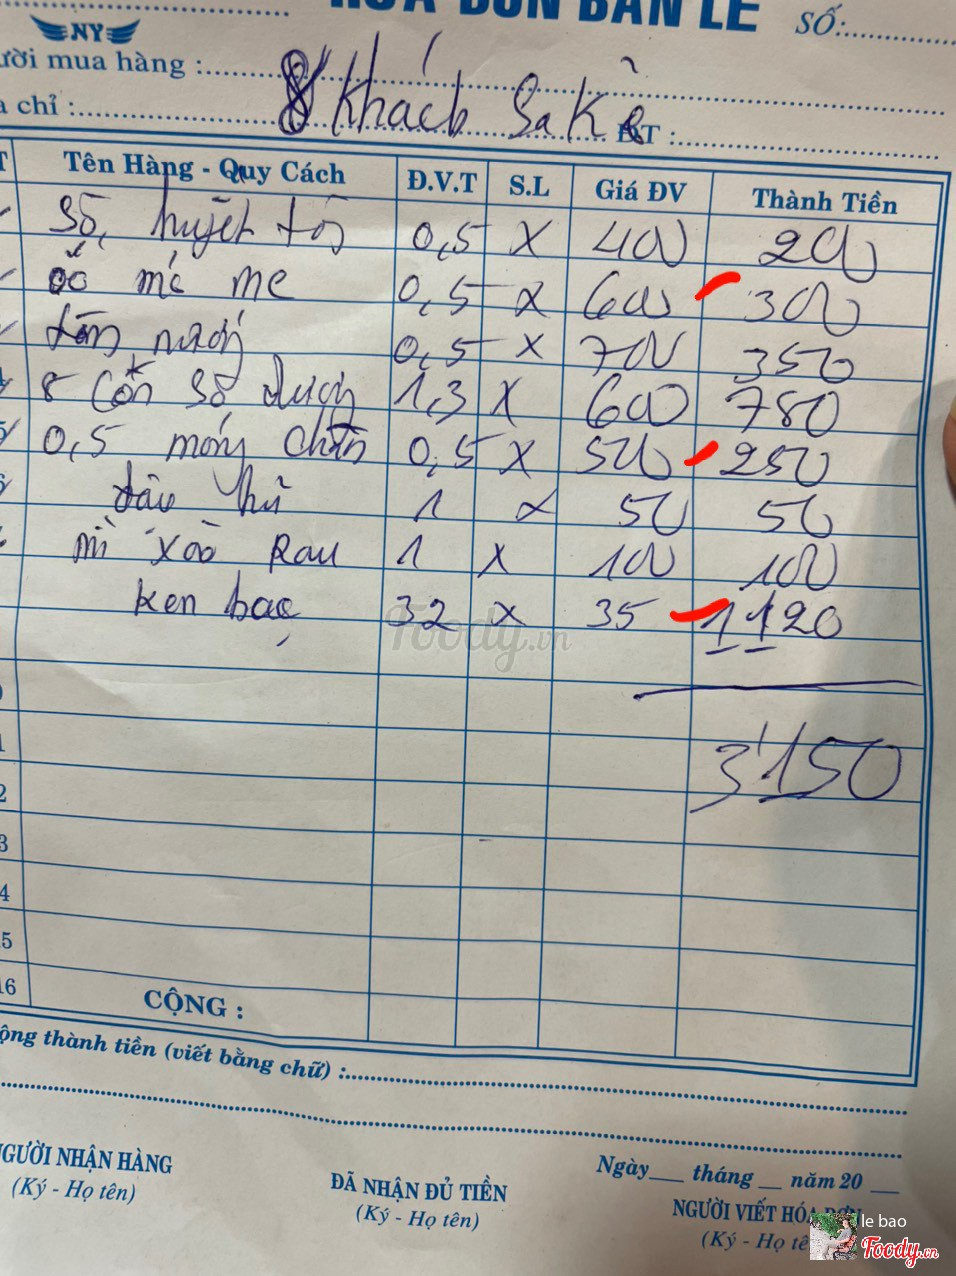 HÓA ĐƠN BÁN LẺ SỐ:
NY
ười mua hàng :
8 Khách Sa Kê
a chỉ : ĐT :
T Tên Hàng - Quy Cách Đ.V.T S.L Giá ĐV Thành Tiền
Sò huyết 0,5 x 400 200
ốc me 0,5 x 600 300
tôm nướng 0,5 x 700 350
8 Cồn Sò 1,3 x 600 780
5 0,5 móng 0,5 x 500 250
6 đậu hũ 1 x 50 50
mì xào Rau 1 x 100 100
Ken bạc 32 x 35 1120
3150
2
3
4
5
16 CỘNG :
ộng thành tiền (viết bằng chữ) :
Ngày tháng năm 20
NGƯỜI NHẬN HÀNG ĐÃ NHẬN ĐỦ TIỀN NGƯỜI VIẾT HÓA ĐƠN
(Ký - Họ tên) (Ký - Họ tên) (Ký - Họ tê
Foody.vn
le bao
Foody.vn